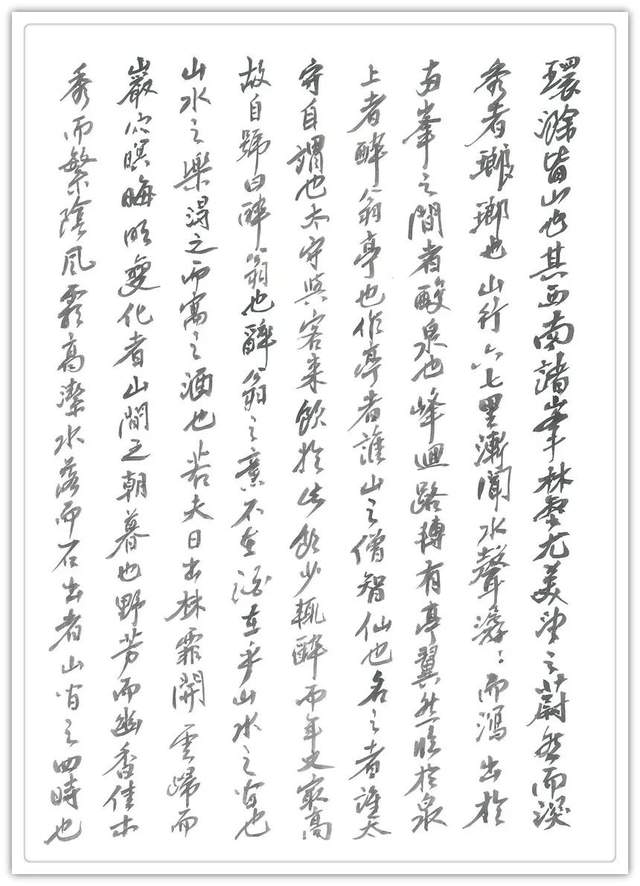 環滁皆山也其西南諸峯林壑尤美望之蔚然而深
秀者瑯瑯也山行六七里漸聞水聲潺〻而瀉出於
两峯之間者釀泉也峰迴路轉有亭翼然臨於泉
上者醉翁亭也作亭者誰山之僧智仙也名之者誰太
守自謂也太守與客来飲於此飲少輒醉而年又最高
故自號曰醉翁也醉翁之意不在酒在乎山水之间也
山水之樂得之而寓之酒也若夫日出林霏開雲歸而
巖穴暝晦明變化者山間之朝暮也野芳而幽香佳木
秀而繁陰風霜高潔水落而石出者山间之四時也